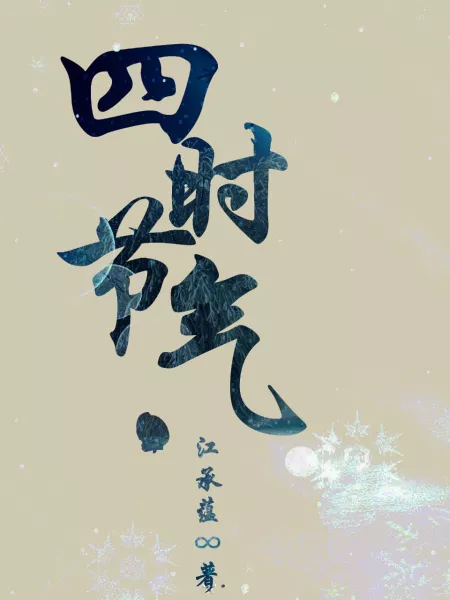 四时节气
江承蕴∞著.